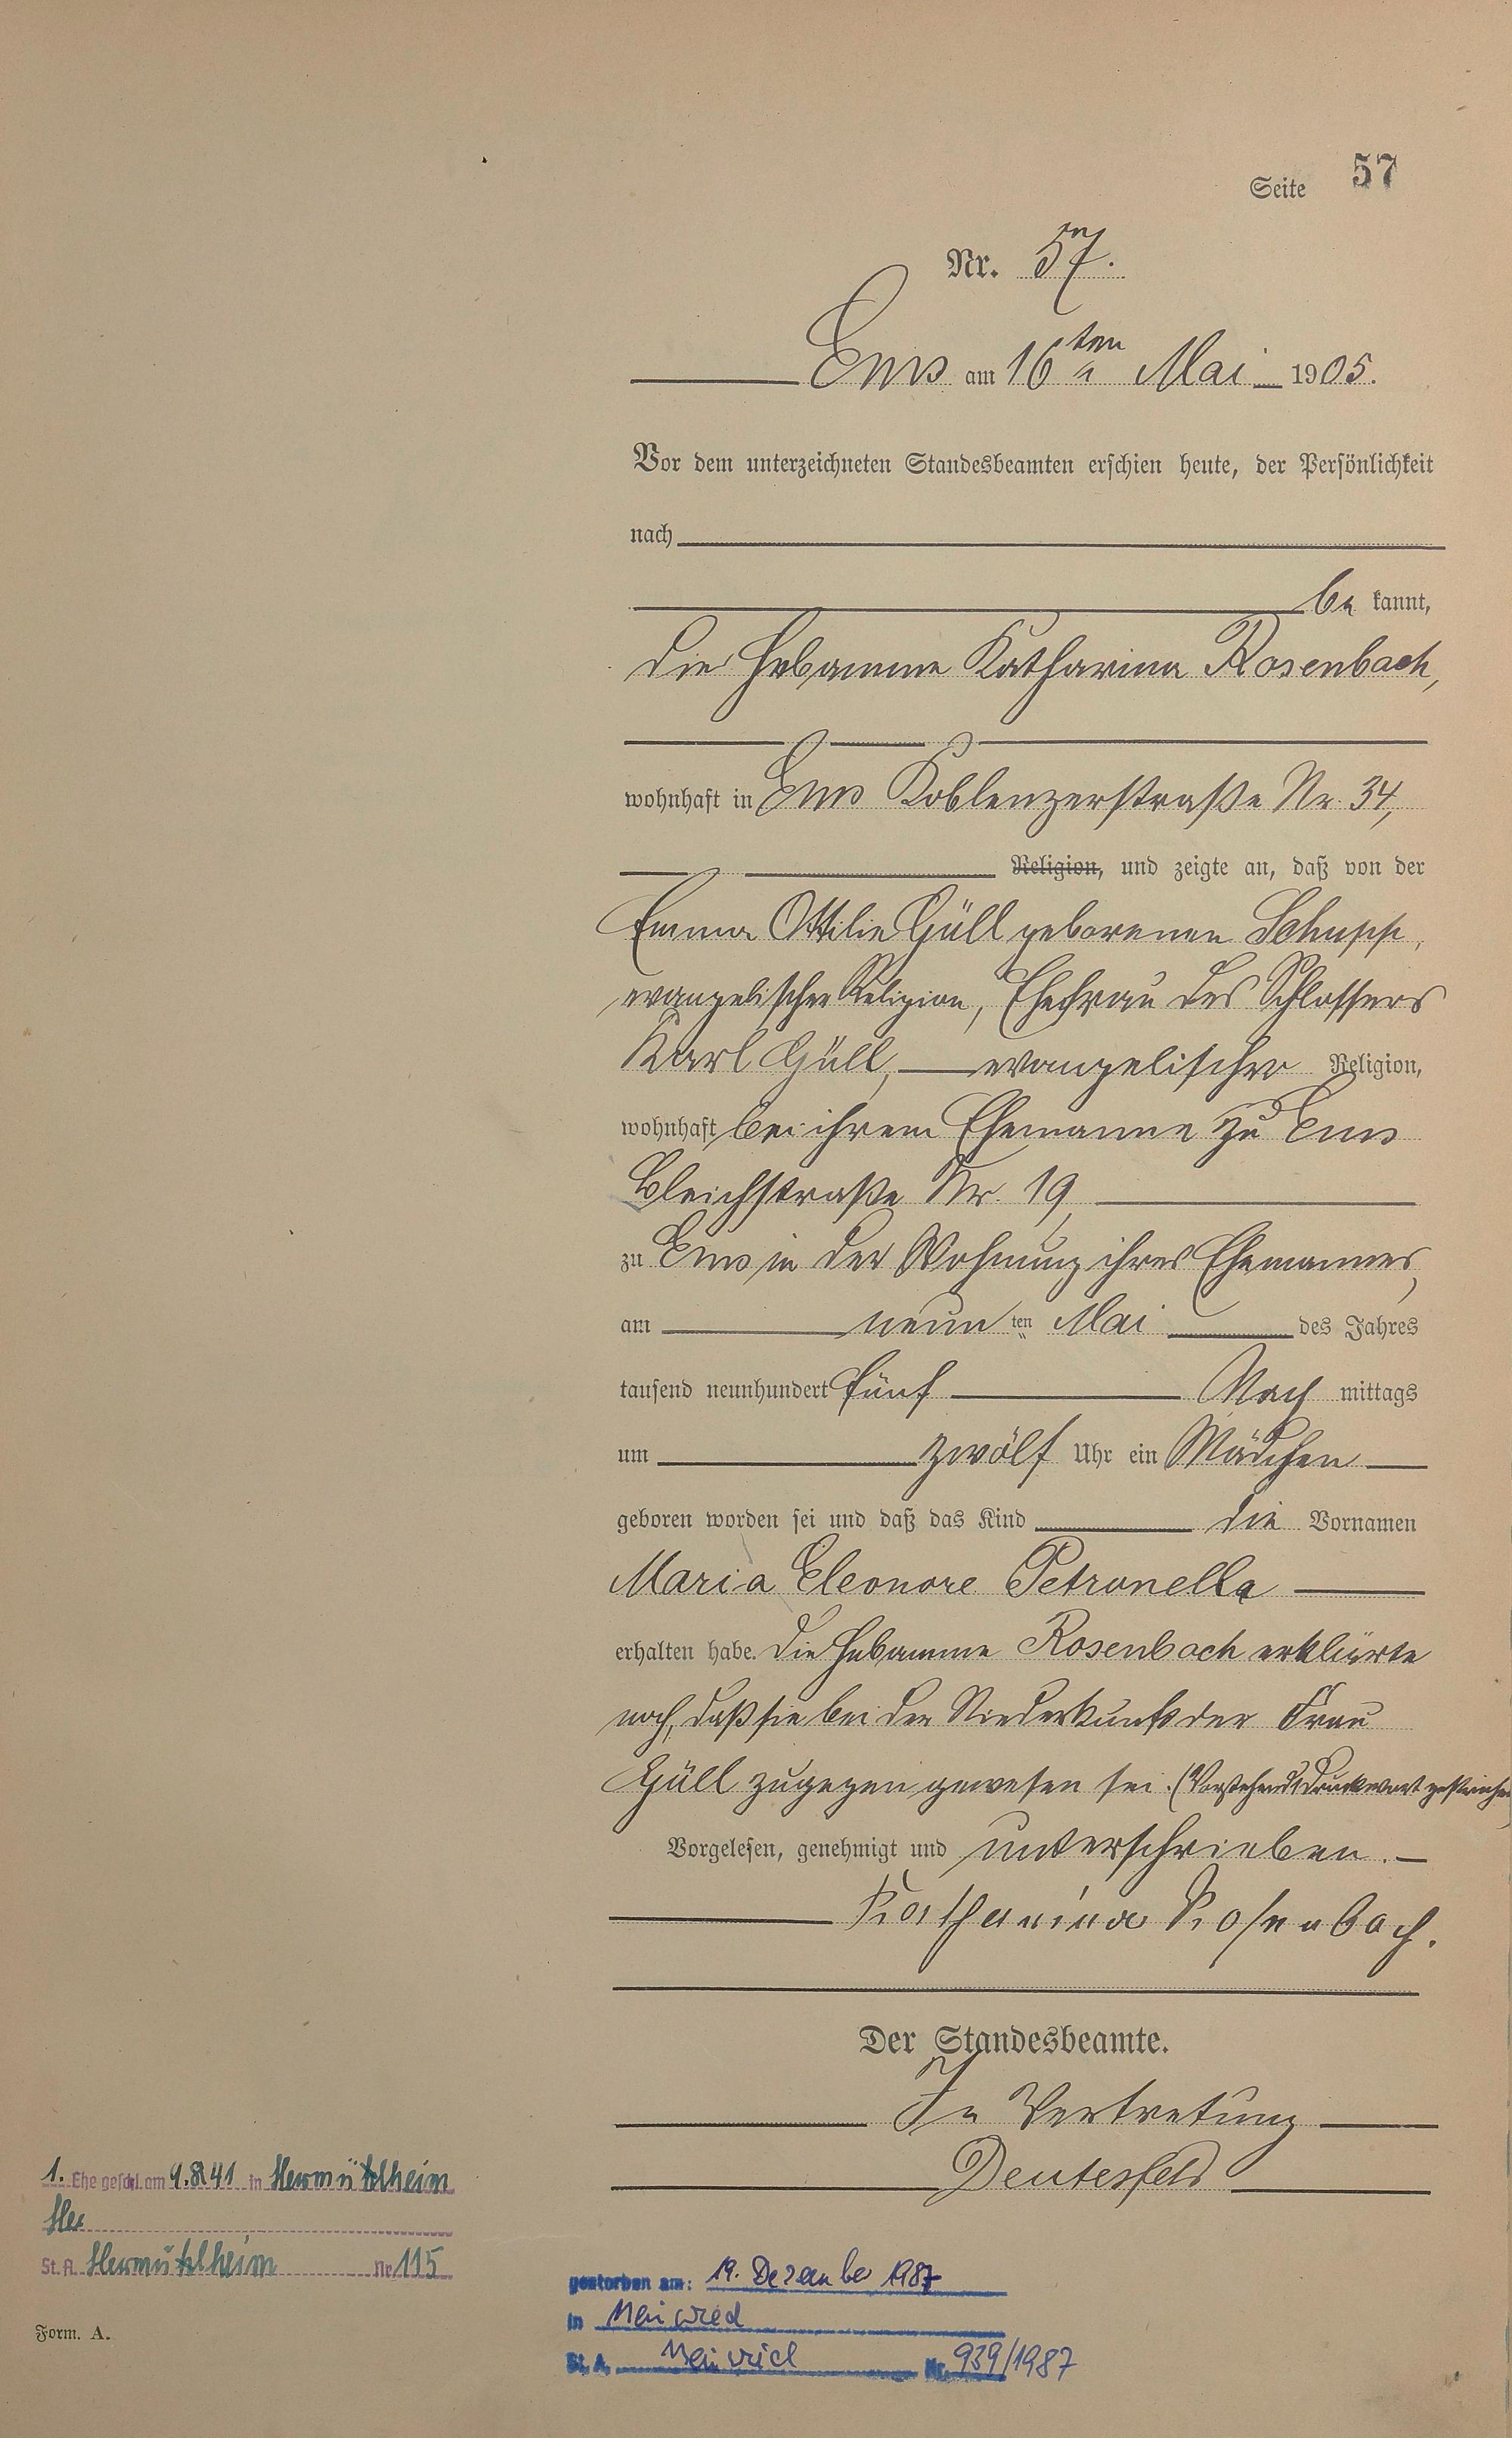 Seite 57
Nr. 57.
Ems am 16ten Mai 1905.
Vor dem unterzeichneten Standesbeamten erschien heute, der Persönlichkeit
nach
be kannt,
die Hebamme Katharina Rosenbach,
wohnhaft in Ems Koblenzerstraße Nr. 34,
Religion, und zeigte an, daß von der
Emma Ottilie Güll geborenen Schupp,
evangelischer Religion, Ehefrau des Schlossers
Karl Güll, evangelischer Religion,
wohnhaft bei ihrem Ehemanne zu Ems
Bleichstraße Nr. 19,
zu Ems in der Wohnung ihres Ehemannes,
am neun ten Mai des Jahres
tausend neunhundert fünf Nach mittags
um zwölf Uhr ein Mädchen
geboren worden sei und daß das Kind die Vornamen
Maria Eleonore Petronella
erhalten habe. Die Hebamme Rosenbach erklärte
noch, daß sie bei der Niederkunft der Frau
Güll zugegen gewesen sei. (Vorstehend 1 Druckwort gestrichen)
Vorgelesen, genehmigt und unterschrieben.
Katharina Rosenbach.
Der Standesbeamte.
In Vertretung
Deutesfeld
1. Ehe geschl. am 9.8.41 in Hermülheim
St. A. Hermülheim Nr. 115
gestorben am: 19. Dezember 1987
in Neuwied
St. A. Neuwied Nr. 939/1987
Form. A.